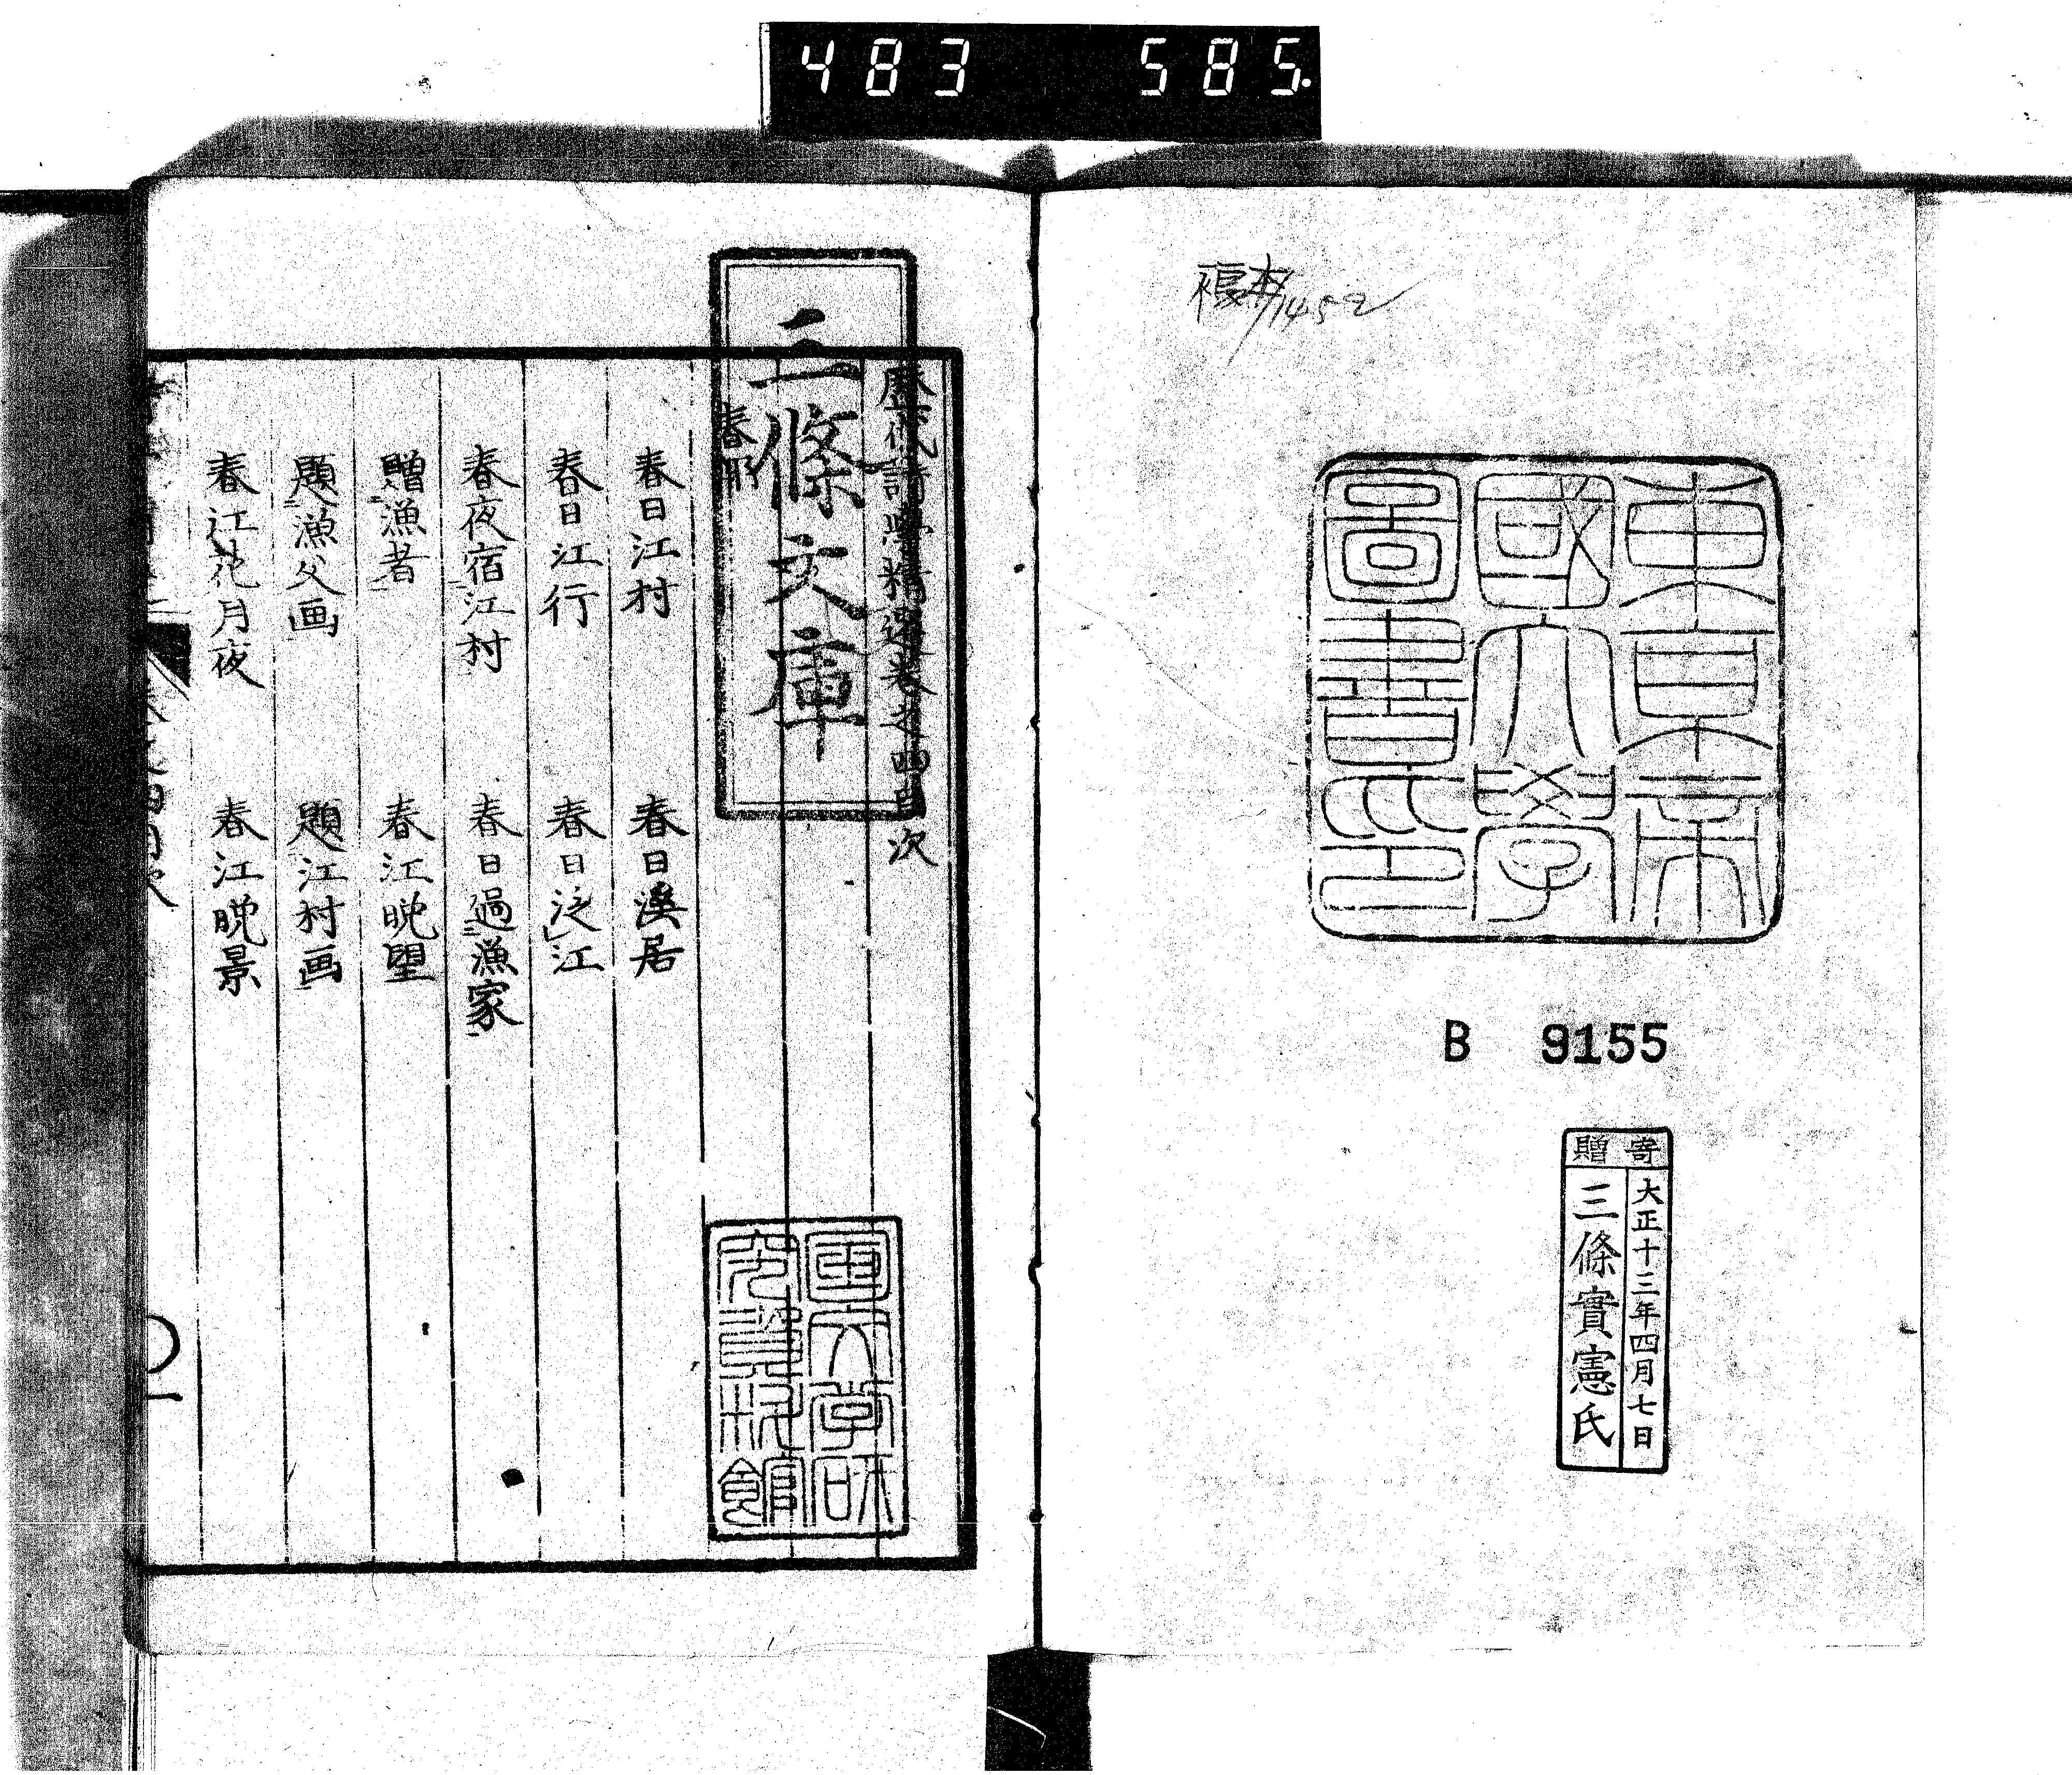 483 585.
複本 1452
東京帝
國大學
圖書印
B 9155
寄贈
大正十三年四月七日
三條實憲氏
歴代詩學精選卷之四目次
三條文庫
春部
春日江村
春日溪居
春日江行
春日泛江
春夜宿江村
春日過漁家
贈漁者
春江晚望
題漁父画
題江村画
春江花月夜
春江晚景
国文学研
究資料館